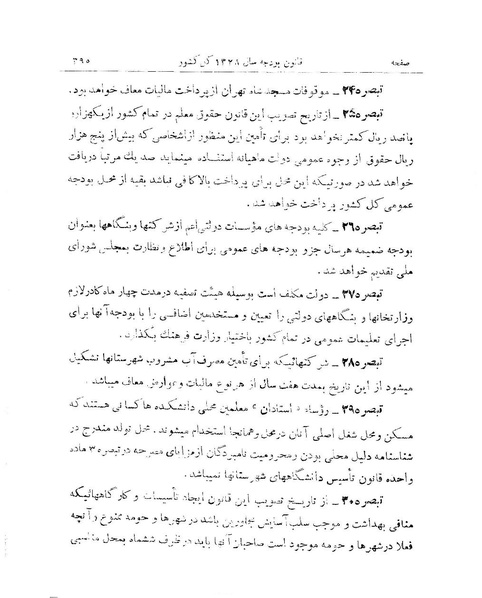 صفحه قانون بودجه سال ۱۳۲۸ کل کشور ۳۹۵
تبصره ۲۴ ــ موقوفات مسجد شاه تهران از پرداخت مالیات معاف خواهد بود.
تبصره ۲۵ ــ از تاریخ تصویب این قانون حقوق معلم در تمام کشور از یکهزار و
پانصد ریال کمتر نخواهد بود برای تأمین این منظور از اشخاصی که بیش از پنج هزار
ریال حقوق از وجوه عمومی دولت ماهیانه استفاده مینماید صد یك مرتباً دریافت
خواهد شد در صورتیکه این محل برای پرداخت بالا کافی نباشد بقیه از محل بودجه
عمومی کل کشور پرداخت خواهد شد.
تبصره ۲۶ ــ کلیه بودجه های مؤسسات دولتی اعم از شرکتها و بنگاهها بعنوان
بودجه ضمیمه هر سال جزو بودجه های عمومی برای اطلاع و نظارت بمجلس شورای
ملی تقدیم خواهد شد.
تبصره ۲۷ ــ دولت مکلف است بوسیله هیئت تصفیه در مدت چهار ماه کادر لازم
وزارتخانها و بنگاههای دولتی را تعیین و مستخدمین اضافی را با بودجه آنها برای
اجرای تعلیمات عمومی در تمام کشور باختیار وزارت فرهنك بگذارد.
تبصره ۲۸ ــ شرکتهائیکه برای تأمین مصرف آب مشروب شهرستانها تشکیل
میشود از این تاریخ بمدت هفت سال از هر نوع مالیات و عوارض معاف میباشد.
تبصره ۲۹ ــ رؤساء « استادان » معلمین محلی دانشکده ها کسانی هستند که
مسکن و محل شغل اصلی آنان در محل و همانجا استخدام میشوند. محل تولد مندرج در
شناسنامه دلیل محلی بودن و محرومیت نامبردگان از مزایای مصرحه در تبصره ۳ ماده
واحده قانون تأسیس دانشگاههای شهرستانها نمیباشد.
تبصره ۳۰ ــ از تاریخ تصویب این قانون ایجاد تأسیسات و کارگاههائیکه
منافی بهداشت و موجب سلب آسایش مجاورین باشد در شهرها و حومه ممنوع و آنچه
فعلا در شهرها و حومه موجود است صاحبان آنها باید در ظرف ششماه بمحل مناسبی